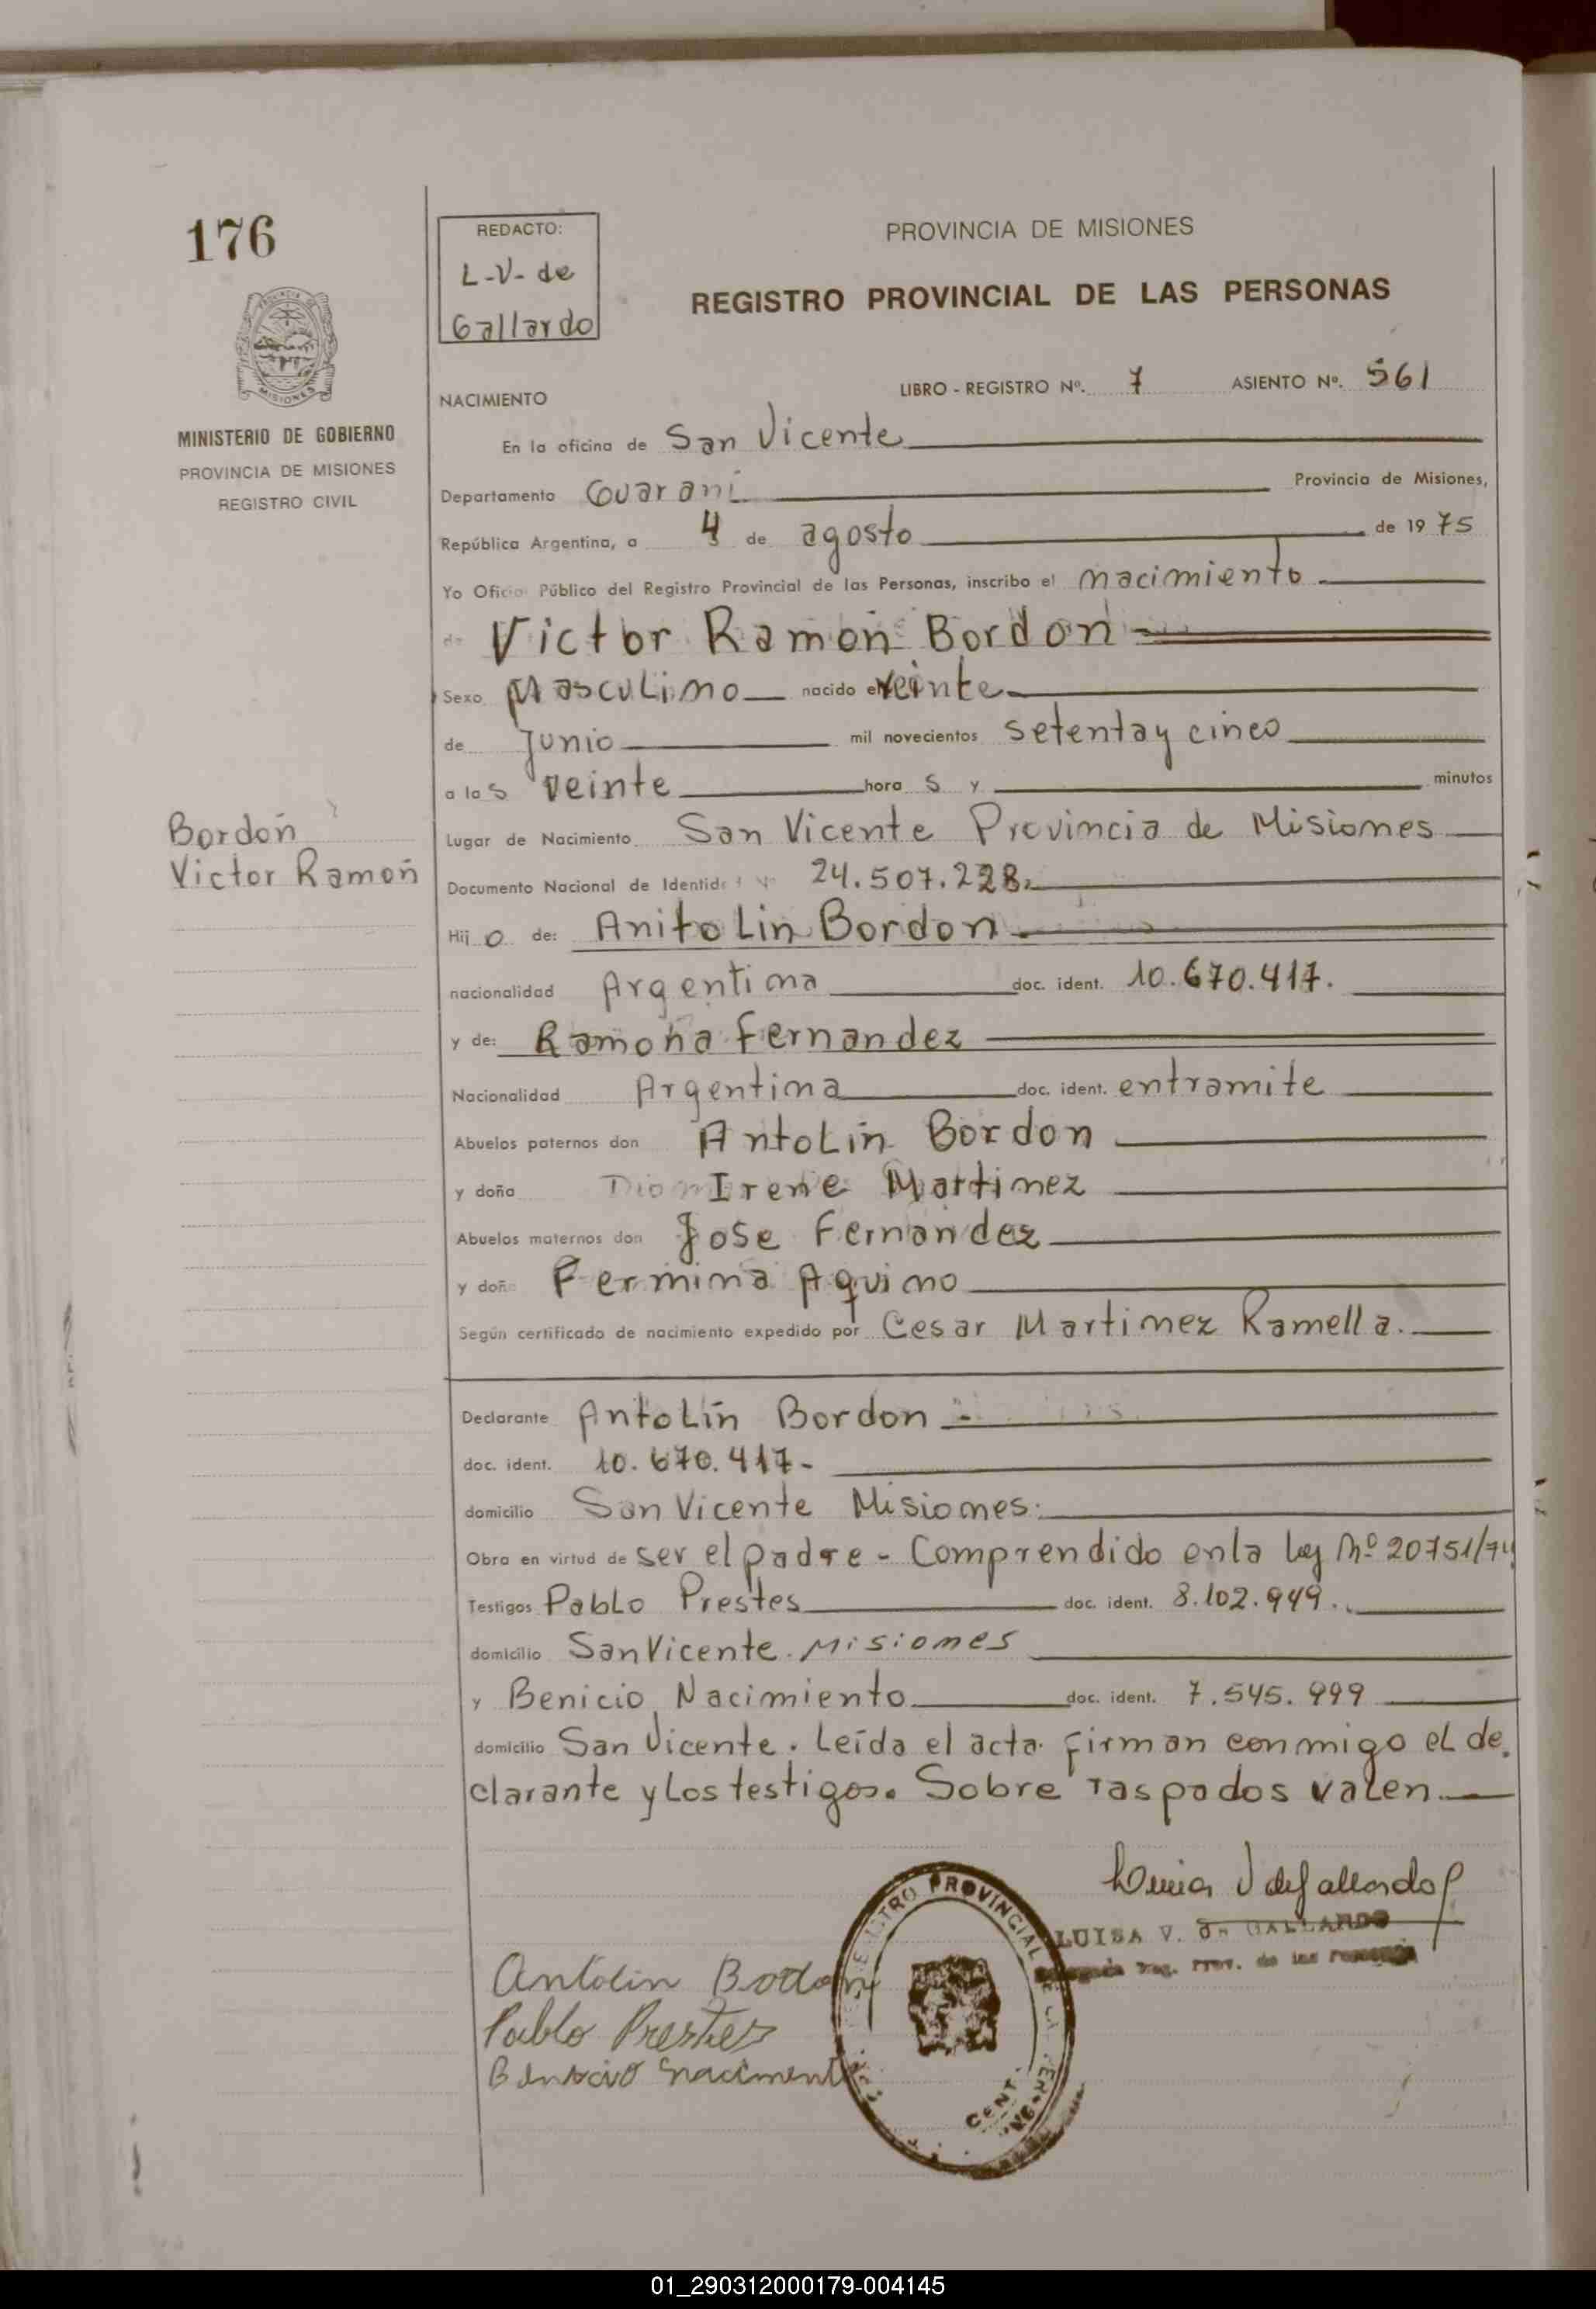 176
REDACTO:
L-V- de
Gallardo
PROVINCIA DE MISIONES
REGISTRO PROVINCIAL DE LAS PERSONAS
MISIONES
MINISTERIO DE GOBIERNO
PROVINCIA DE MISIONES
REGISTRO CIVIL
NACIMIENTO
LIBRO - REGISTRO Nº. 7 ASIENTO Nº. 561
En la oficina de San Vicente
Departamento Guaraní Provincia de Misiones,
República Argentina, a 4 de agosto de 1975
Yo Oficial Público del Registro Provincial de las Personas, inscribo el nacimiento
de Victor Ramón Bordón
Sexo Masculino nacido el veinte
de Junio mil novecientos setentay cinco
a las veinte horas y minutos
Bordón
Victor Ramón
Lugar de Nacimiento San Vicente Provincia de Misiones
Documento Nacional de Identidad Nº 24.507.228.
Hijo de: Anitolin Bordon
nacionalidad Argentina doc. ident. 10.670.417.
y de: Ramona Fernandez
Nacionalidad Argentina doc. ident. entramite
Abuelos paternos don Antolín Bordon
y doña Irene Martinez
Abuelos maternos don Jose Fernandez
y doña Fermina Aquino
Según certificado de nacimiento expedido por Cesar Martinez Ramella.
Declarante Antolín Bordon
doc. ident. 10.670.417-
domicilio San Vicente Misiones.
Obra en virtud de ser el padre - Comprendido enla ley Nº 20751/74
Testigos Pablo Prestes doc. ident. 8.102.949.
domicilio San Vicente. Misiones
y Benicio Nacimiento doc. ident. 7.545.999
domicilio San Vicente. Leída el acta firman conmigo el de
clarante y los testigos. Sobre raspados valen
Luisa V de Gallardo
LUISA V. DE GALLARDO
Reg. Prov. de las Personas
Antolin Bordon
Pablo Prestes
Benicio Naciment
REGISTRO PROVINCIAL DE LA PER
CENT.
01_290312000179-004145